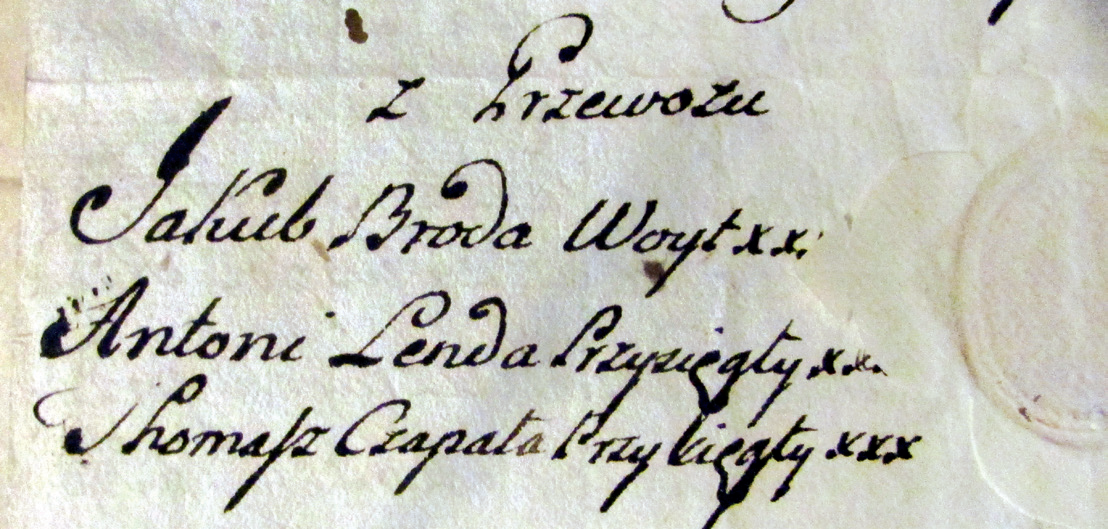 z Przewozu
Jakub Broda Woyt xx
Antoni Lenda Przysięgły xxx
Thomasz Czapała Przysięgły xxx